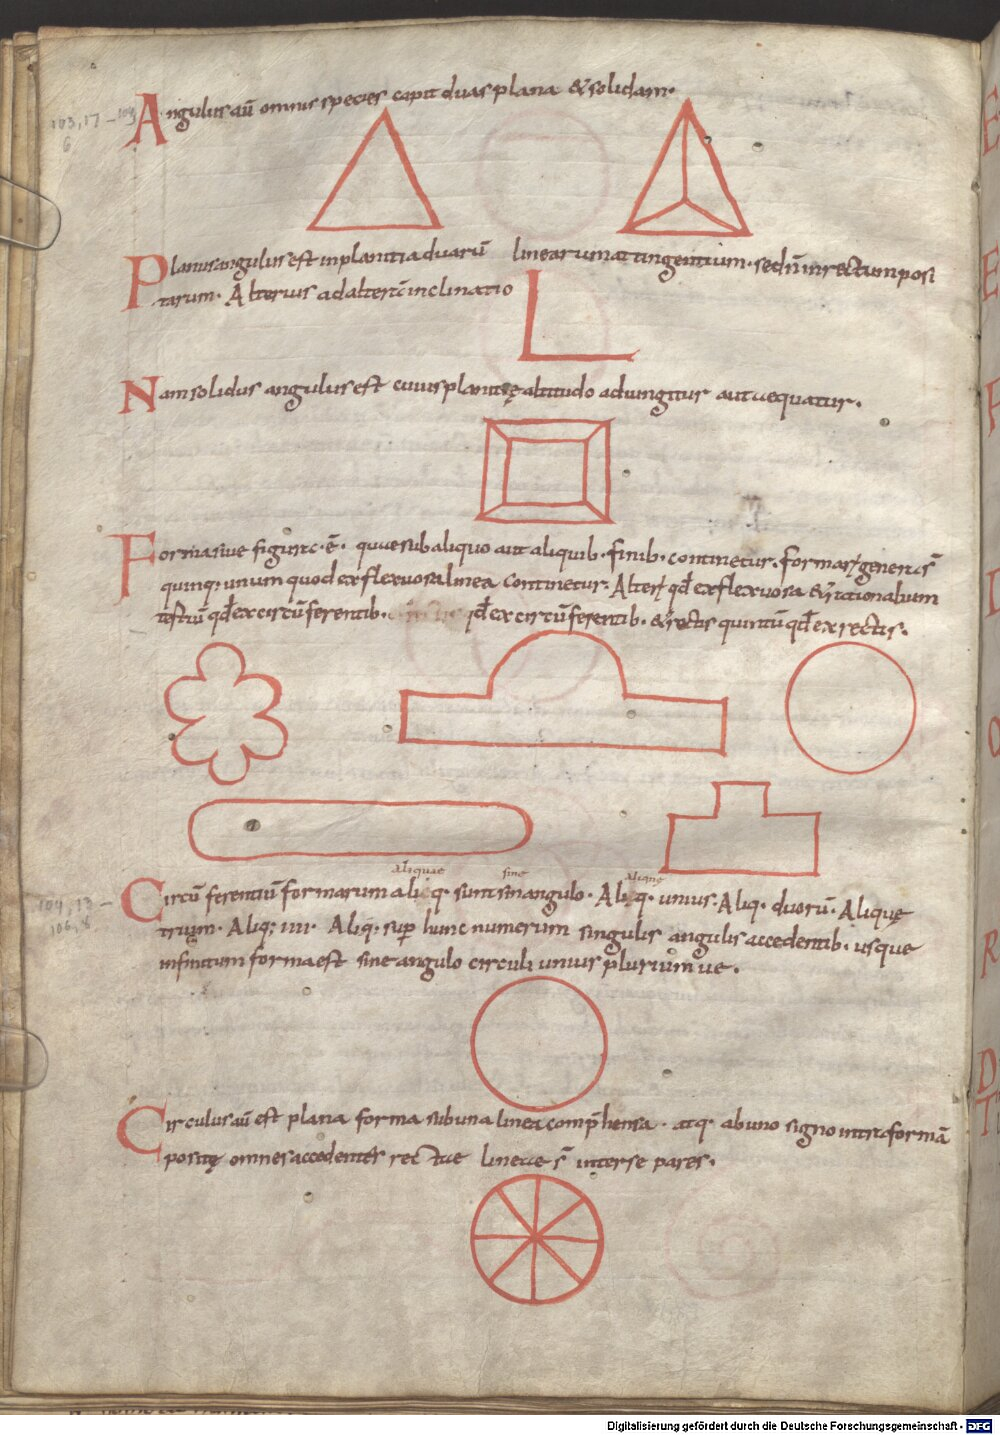 Angulus aū omnis species capit duas plana & solidam·
103,17 – 109
6
Planus angulus est in planitia duarū linearum attingentium· sed n̄ in rectum posi
tarum· Alterius ad alterā inclinatio
Nam solidus angulus est cuius planitię altitudo adiungitur aut aequatur.
Forma siue figura·ē· quae sub aliquo aut aliquib· finib· continetur. formarꝝ genera s̄
quinq; unum quod ex flexuosa linea continetur: Alterꝝ qd̄ ex flexuosa & rationalium
tertiū qd̄ ex circū ferentib· qd̄ ex circū ferentib· & rectis quintū qd̄ ex rectis.
aliquae sine Aliquę
Circū ferentiū formarum aliq· sunt sin angulo· Aliq· unius· Aliq· duorū· Aliquę
trium· Aliq; IIII· Aliq; sup̄ hunc numerum singulis angulis accedentib· usque
104,13 –
106,8
infinitum forma est sine angulo circuli unius plurium ue.
Circulus aū est plana forma sub una linea comp̄hensa· atq· ab uno signo intra formā
positę omnes accedentes rectae lineae s̄ inter se pares.
Digitalisierung gefördert durch die Deutsche Forschungsgemeinschaft - DFG